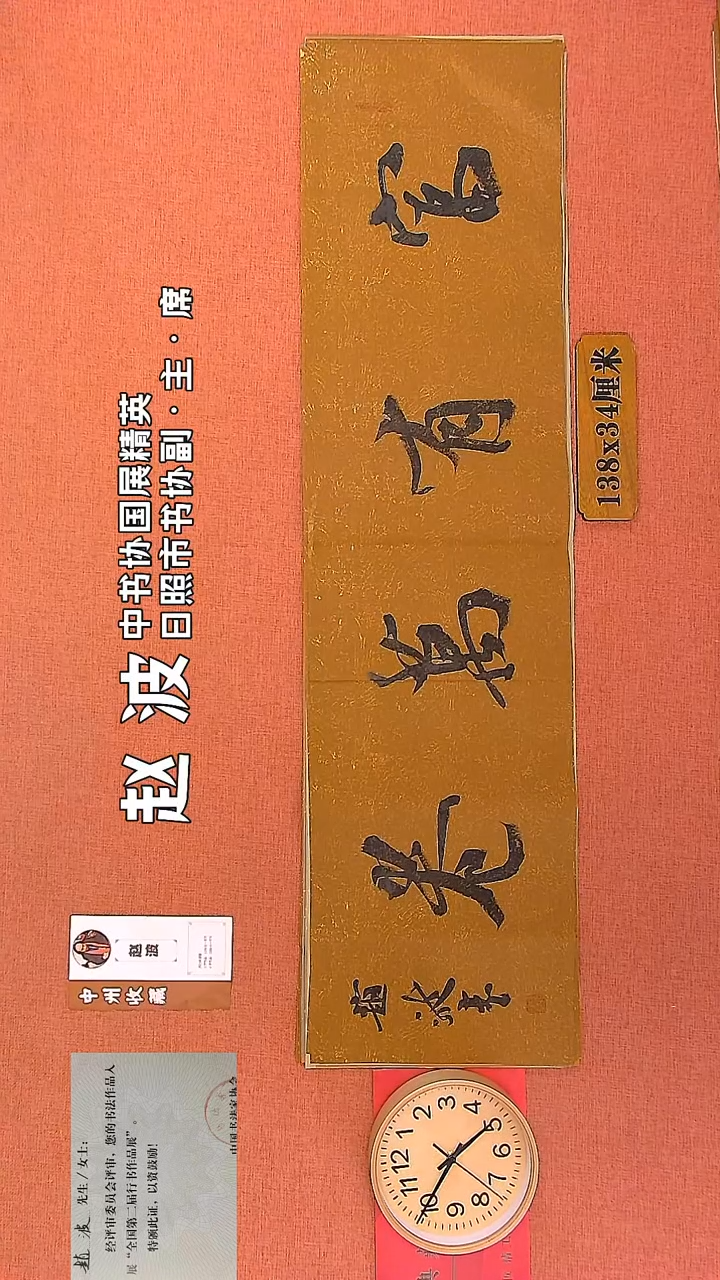 赵波
中书协国展精英
日照市书协副·主·席
趙波 先生/女士:
经评审委员会评审,您的书法作品入
展“全国第二届行书作品展”。
特颁此证,以资鼓励!
中国书法家协会
赵波
中州收藏
有
趙波书
138x34厘米
12
1
2
3
4
5
6
7
8
9
10
11